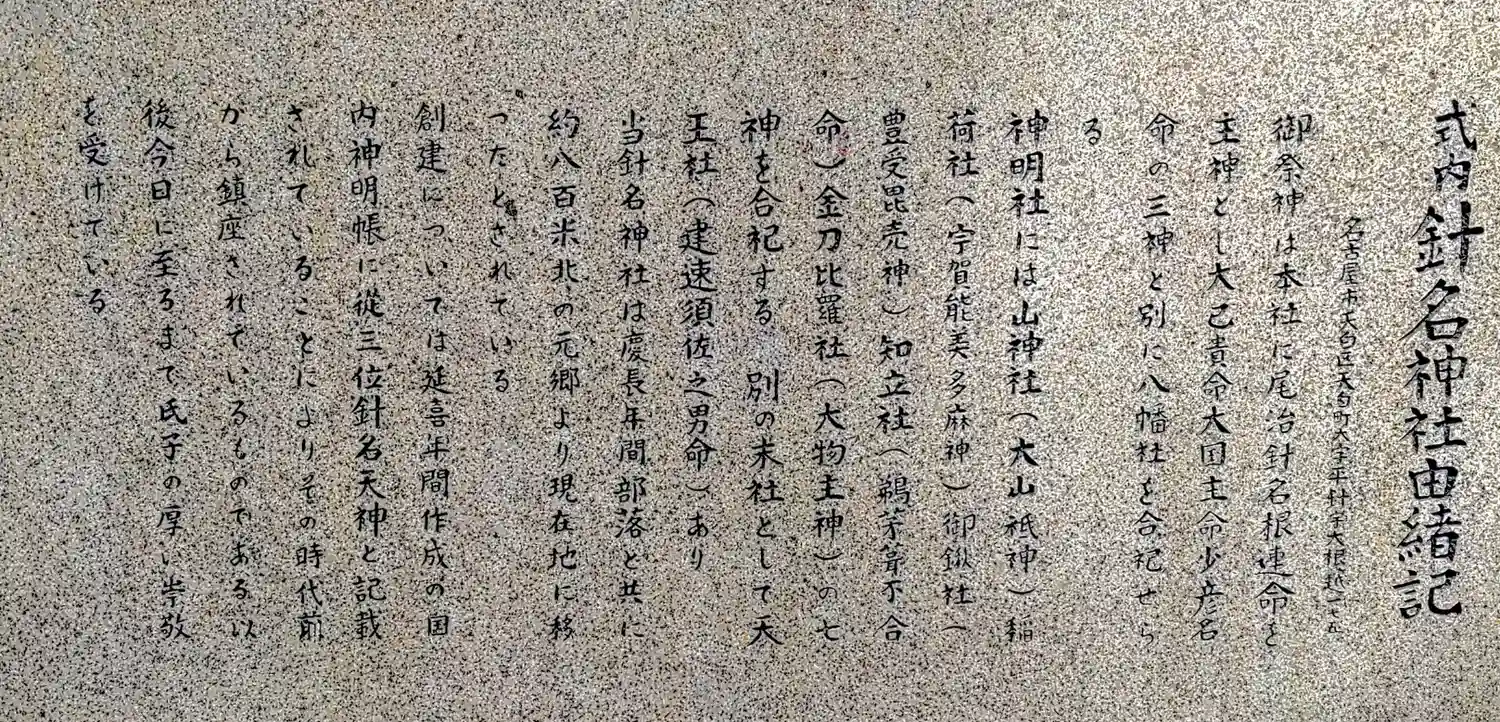 式内針名神社由緒記
名古屋市天白区天白町大字平針字大根越
御祭神は本社に尾治針名根連命を
主神とし大己貴命大国主命少彦名
命の三神と別に八幡社を合祀せら
る
神明社には山神社(大山祇神)稲
荷社(宇賀能美多麻神)御鍬社(
豊受毘売神)知立社(鵜茅葺不合
命)金刀比羅社(大物主神)の七
神を合祀する 別の末社として天
王社(建速須佐之男命)あり
当針名神社は慶長年間部落と共に
約八百米北の元郷より現在地に移
つたとされている
創建については延喜年間作成の国
内神明帳に從三位針名天神と記載
されていることによりその時代前
から鎮座されているものである以
後今日に至るまで氏子の厚い崇敬
を受けている